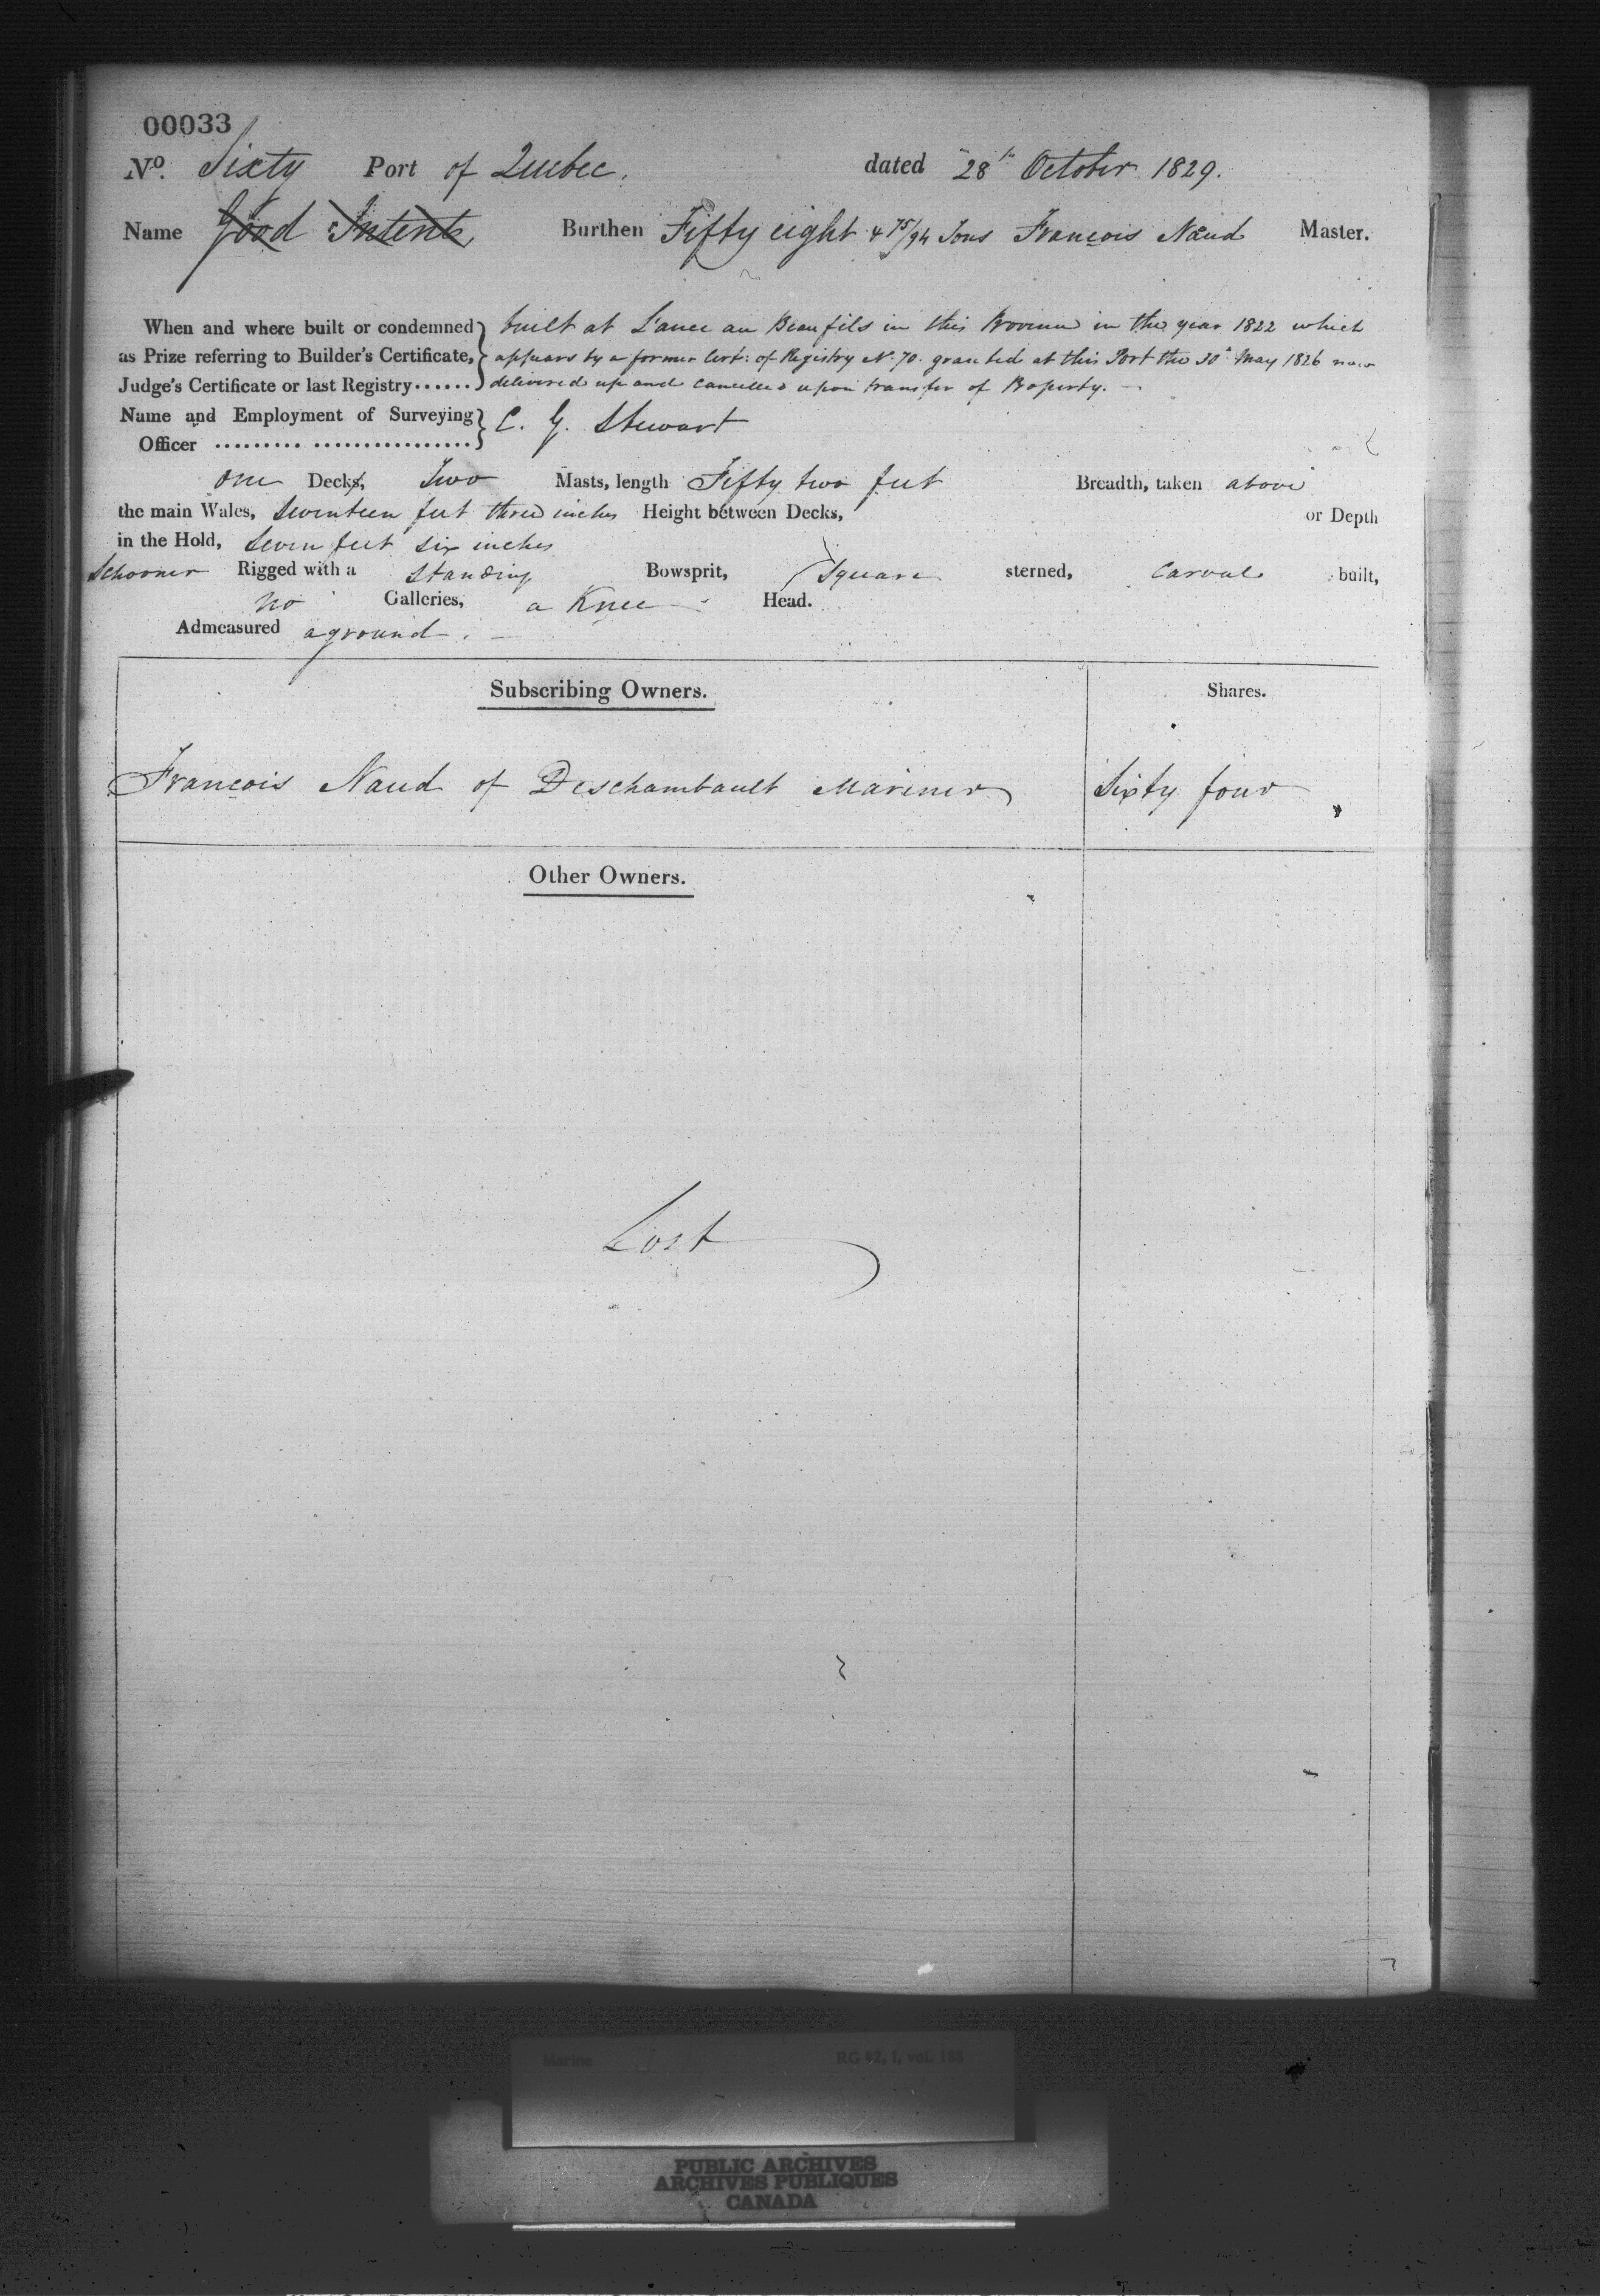 00033
No. Sixty Port of Quebec. dated 28th October 1829.
Name Good Intents Burthen Fifty eight & 75/94 Tons Francois Naud Master.
When and where built or condemned built at L'ance au Beaufils in this Province in the year 1822 which
as Prize referring to Builder's Certificate, appears by a former Cert: of Registry No. 70. granted at this Port the 30th May 1826 now
Judge's Certificate or last Registry...... delivered up and cancelled upon transfer of Property. —
Name and Employment of Surveying
Officer ......... ................ C. G. Stewart
one Decks, Two Masts, length Fifty two feet Breadth, taken above
the main Wales, Seventeen feet three inches Height between Decks, or Depth
in the Hold, Seven feet six inches
Schooner Rigged with a Standing Bowsprit, Square sterned, Carvel built,
no Galleries, a Knee Head.
Admeasured aground. —
Subscribing Owners. Shares.
Francois Naud of Deschambault Mariner Sixty four
Other Owners.
Lost
Marine RG 42, I, vol. 188
PUBLIC ARCHIVES
ARCHIVES PUBLIQUES
CANADA